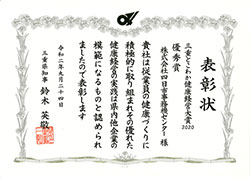 表彰状
三重とこわか健康経営大賞2020
優秀賞
株式会社四日市事務機センター様
貴社は従業員の健康づくりに
積極的に取り組まれその優れた
健康経営の実践は県内他企業の
模範になるものと認められ
ましたので表彰します
令和二年九月二十四日
三重県知事 鈴木英敬